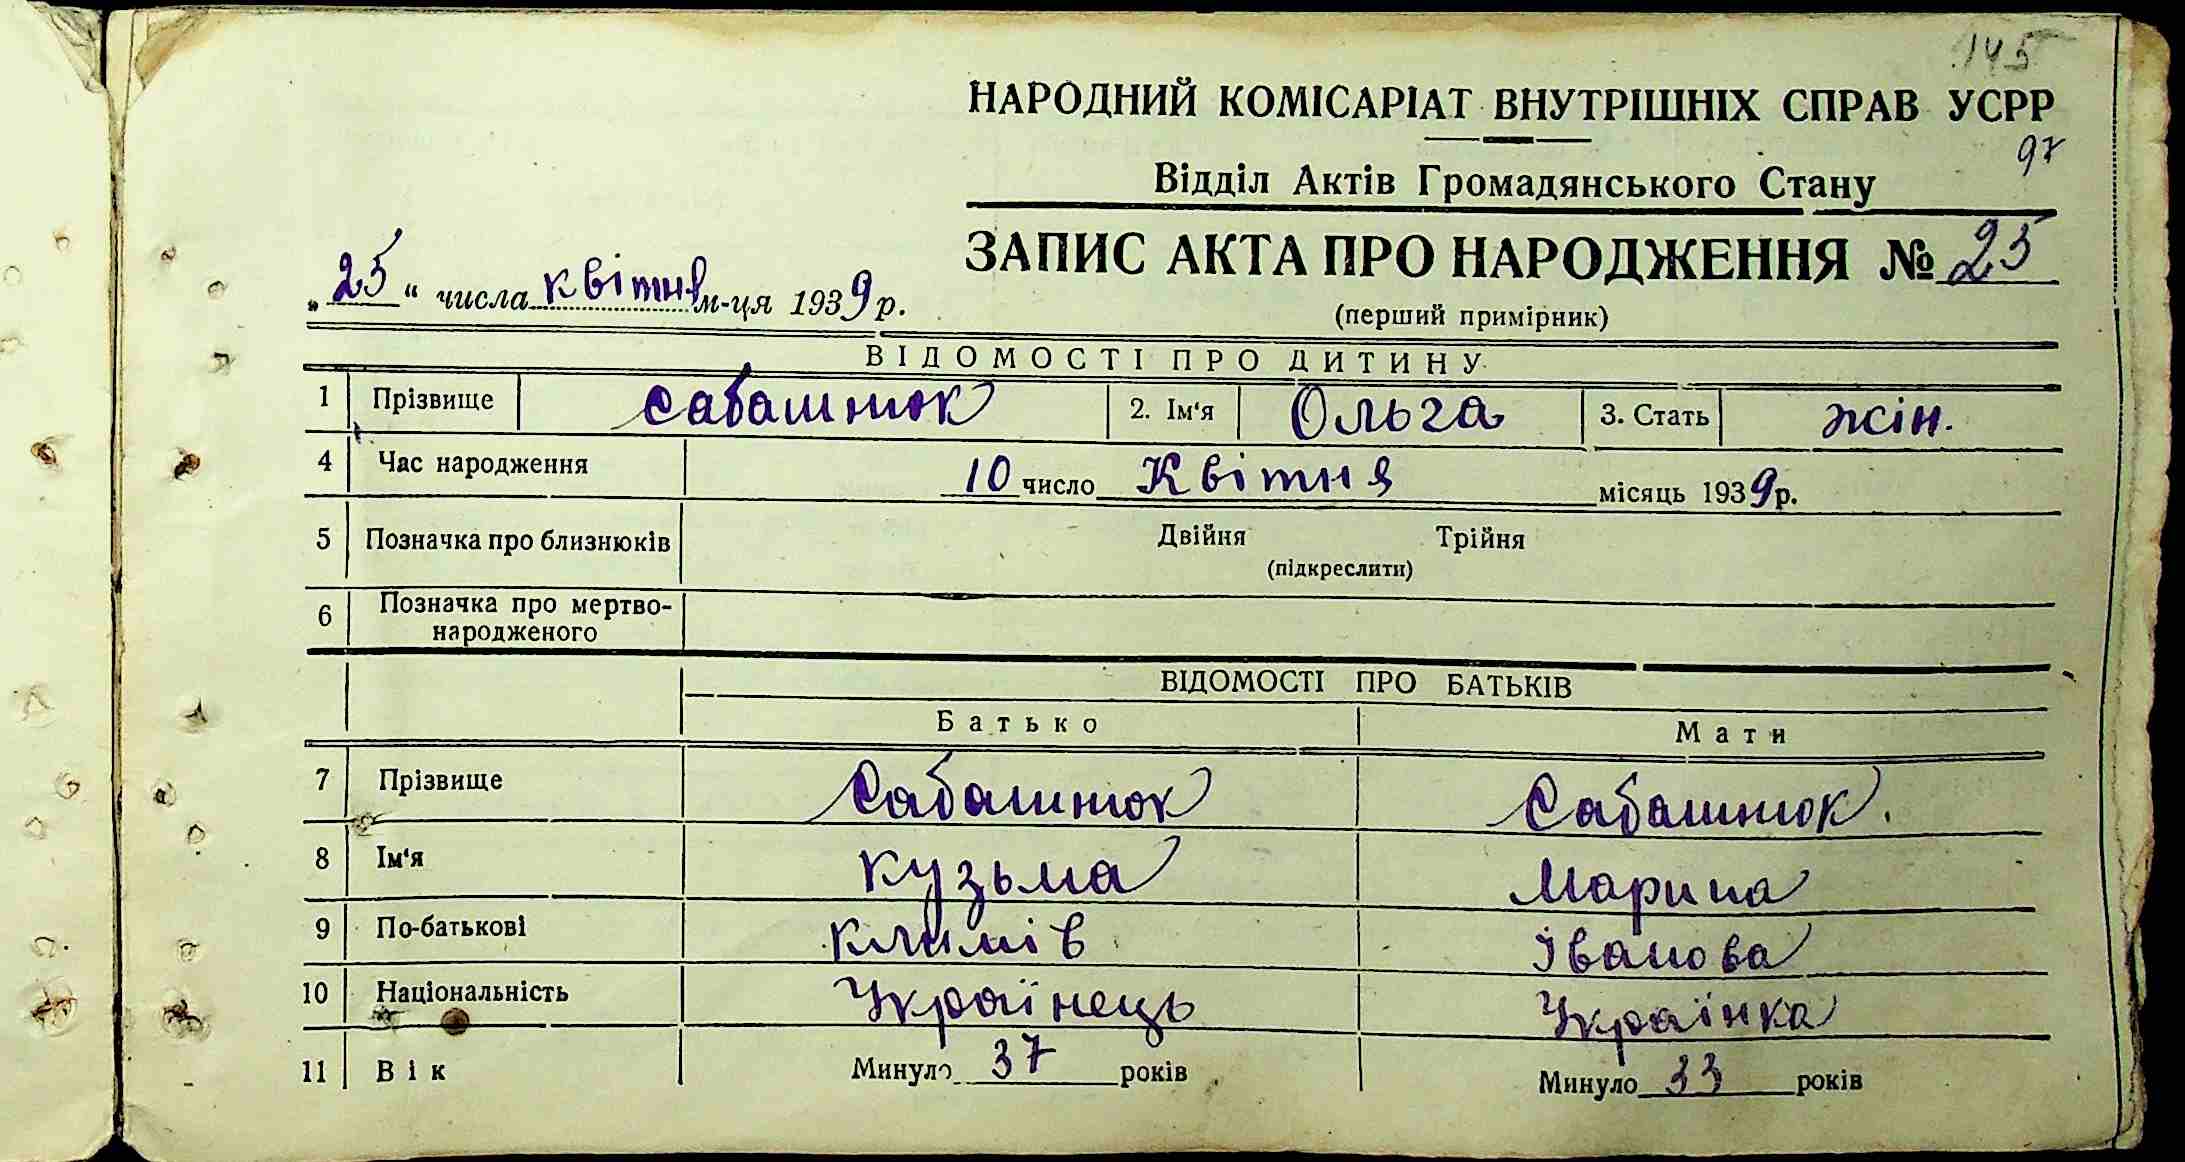 145
НАРОДНИЙ КОМІСАРІАТ ВНУТРІШНІХ СПРАВ УСРР
97
Відділ Актів Громадянського Стану
ЗАПИС АКТА ПРО НАРОДЖЕННЯ № 25
„25“ числа квітня м-ця 1939 р.
(перший примірник)
ВІДОМОСТІ ПРО ДИТИНУ
1 Прізвище Сабашнюк 2. Ім'я Ольга 3. Стать жін.
4 Час народження 10 число Квітня місяць 1939 р.
5 Позначка про близнюків Двійня Трійня
(підкреслити)
6 Позначка про мертво-
народженого
ВІДОМОСТІ ПРО БАТЬКІВ
Батько Мати
7 Прізвище Сабашнюк Сабашнюк.
8 Ім'я Кузьма Марина
9 По-батькові Климів Іванова
10 Національність Українець Українка
11 Вік Минуло 37 років Минуло 33 років